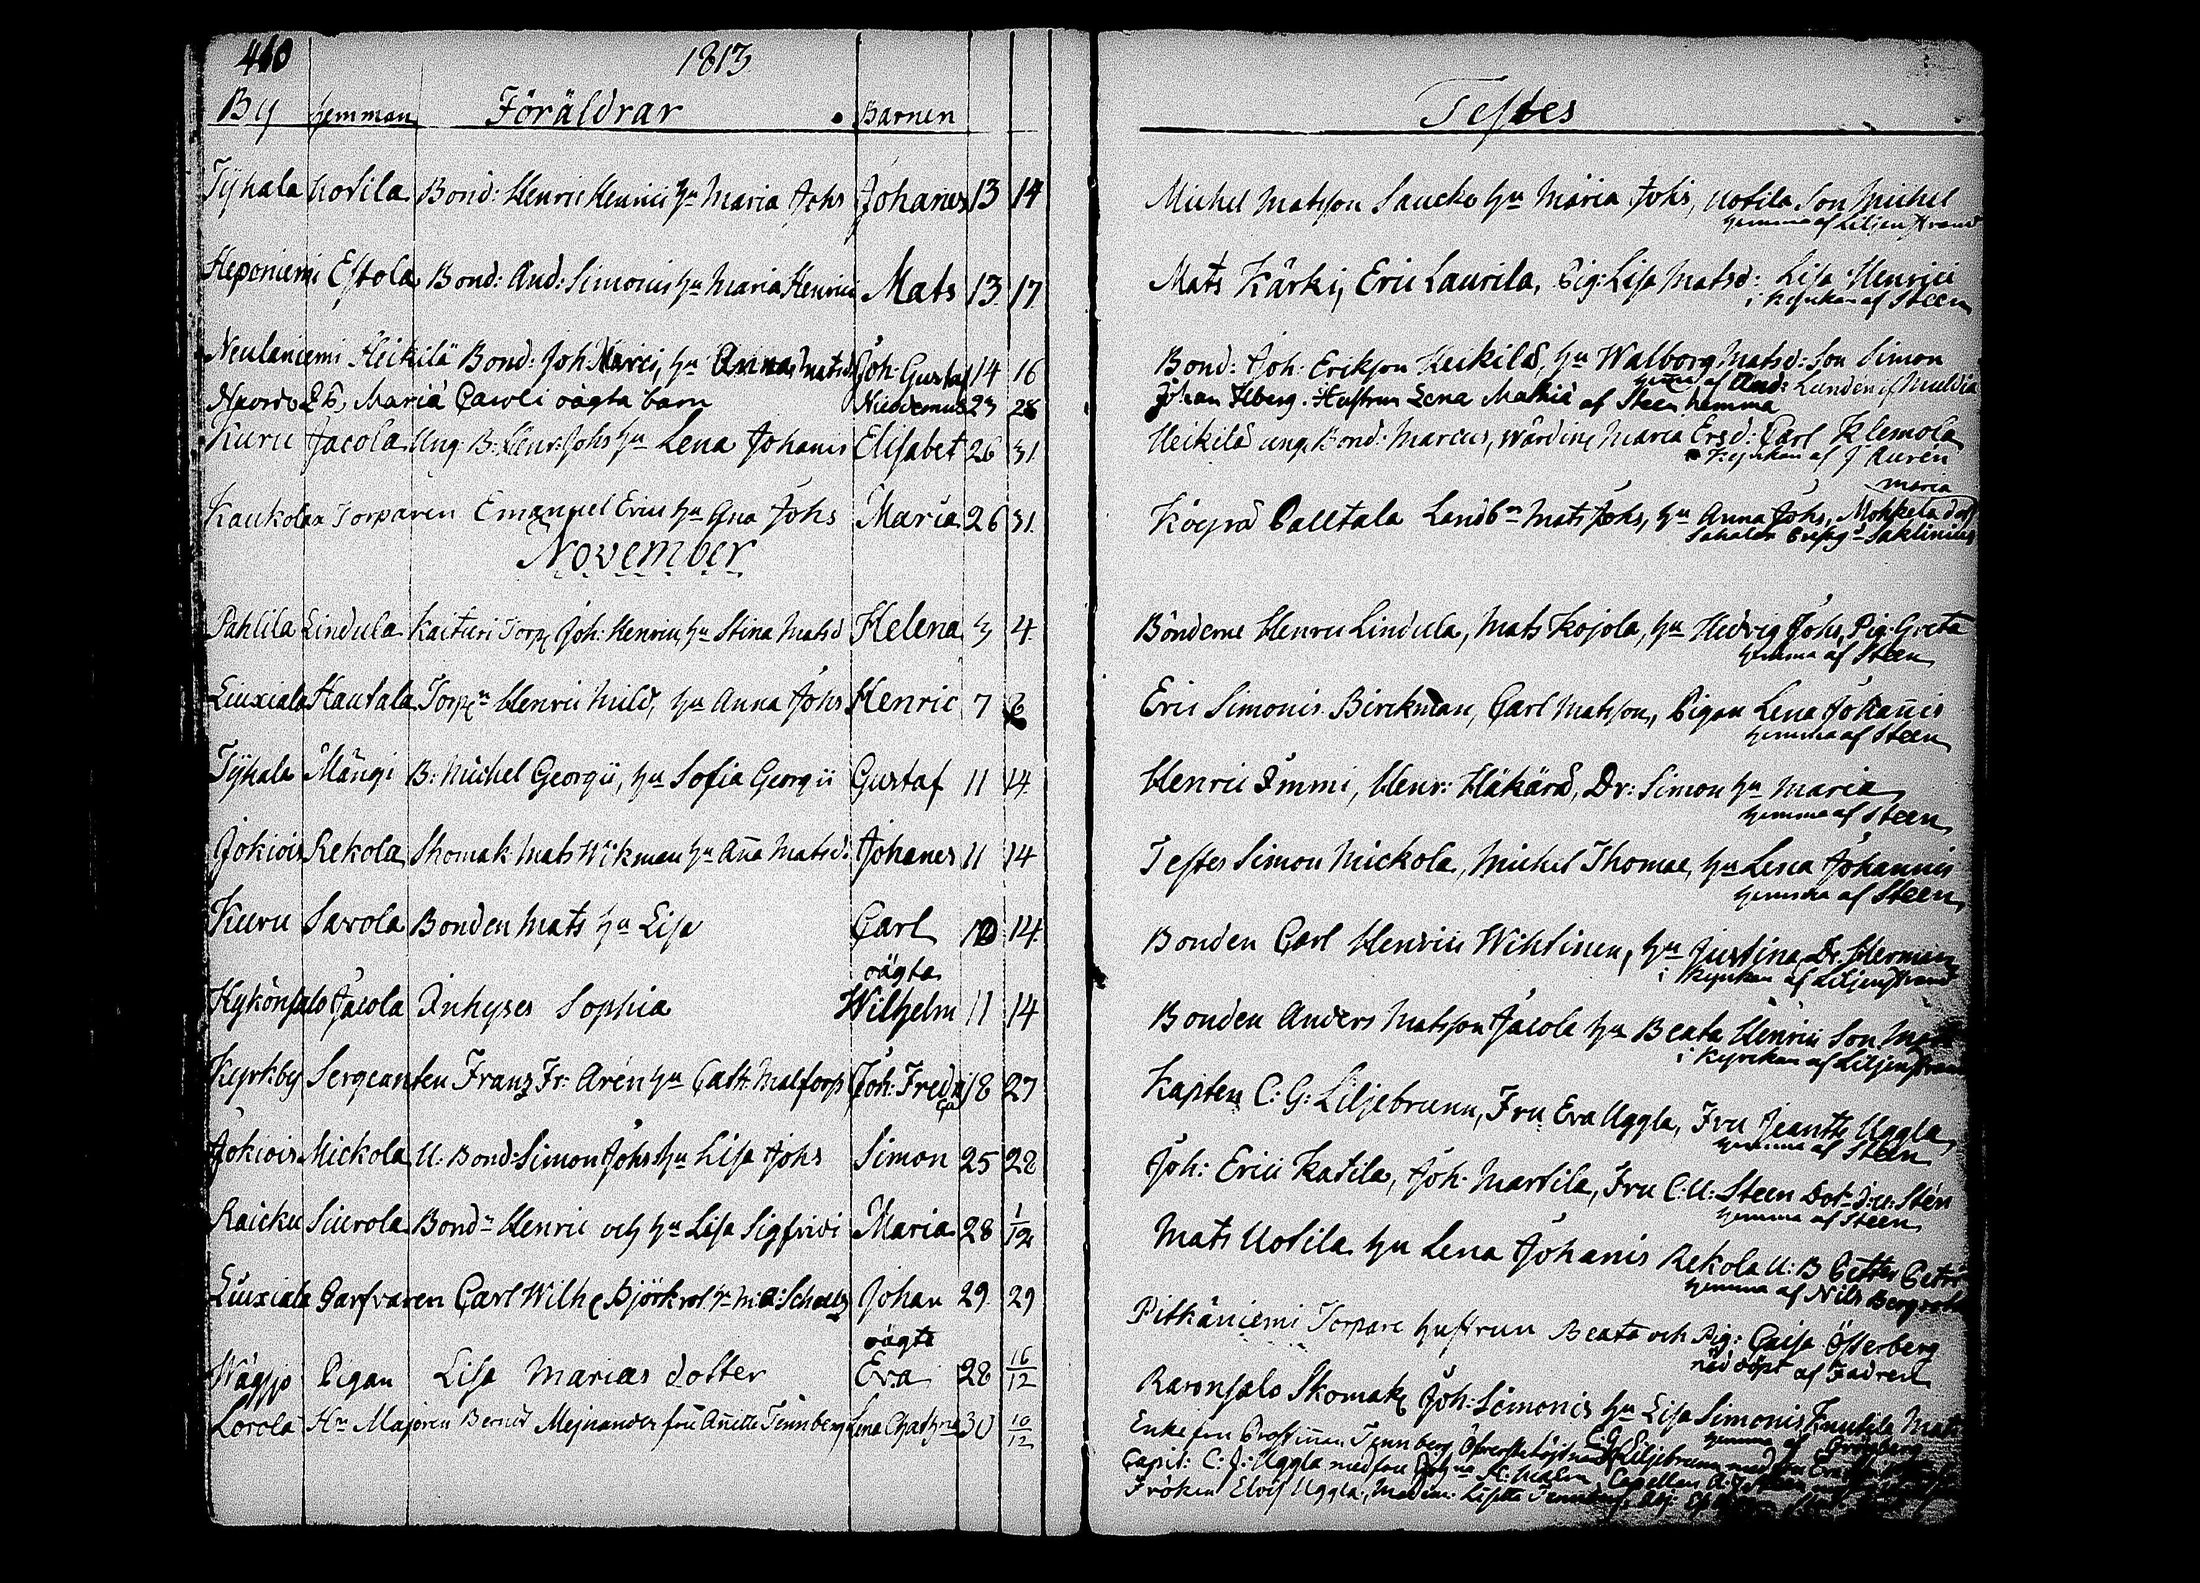 460 1813
By hemman Föräldrar Barnen
Tyhala Uotila Bond: Henric Henrici hu Maria Johs Johanes 13 14
Heponiemi Estola Bond: And: Simonis hu Maria Henrici Mats 13 17
Neulaniemi Heikilä Bond: Joh Marci, hu Anna Matsd Joh: Gustaf 14 16
Maria Caroli oägta barn Nicodemus 23 28
Kuru Jacola Ung. B: Henr: Johs hu Lena Johanis Elisabet 26 31
Kaukola Torparen Emanuel Erici hu Ana Johs Maria 26 31
November
Pahlila Lindula Kaituri Torp Joh: Henrici, hu Stina Matsd Helena 3 4
Liuxiala Hautala Torpn Henric Mild, hu Anna Johs Henric 7 8
Tyhala Mångi B: Michel Georgii, hu Sofia Georgii Gustaf 11 14
Jokiois Rekola Skomak Mats Wikman hu Ana Matsd: Johanes 11 14
Kuru Savola Bonden Mats hu Lisa Carl 10 14
oägta
Kykönsalo Jacola Inhyses Sophia Wilhelm 11 14
Kyrkby Sergeanten Franz Fr: Aren hu Cath: Malmtorp Joh: Fredric 18 27
Jokiois Mickola U: Bond: Simon Johs hu Lisa Johs Simon 25 28
Raicku Siurola Bondn Henric och hu Lisa Sigfridi Maria 28 1/12
Liuxiala Garfvaren Carl Wilh Björkrot hu M: Johan 29 29
oägta
Pigan Lisa Marias dotter Eva 28 16/12
Lorola Hr Majoren Bernd Mejnander fru Anette Tennberg Lena Chath 30 10/12
Testes
Michel Matsson Saucko hu Maria Johs, Uotila Son Michel
hemma af Liljenstrand
Mats Kärki, Eric Laurila, Pig: Lisa Matsd: Lisa Henrici
i kyrkan af Steen
Bond: Joh: Erikson Heikilä, hu Walborg Matsd: Son Simon
hemma af And: Lunden
Johan Hustrun Lena af Steen hemma
Heikilä ung. Bond: Marcus, Wärdin Maria Ersd: Carl Klemola
Kyrkan af J Auren
Maria
Palltala Landbn Mats Johs, hu Anna Johs,
Bönderne Henric Lindula, Mats Kojola, hu Hedvig Johs, Pig: Greta
hemma af Steen
Eric Simonis Birckman, Carl Matsson, Pigan Lena Johanis
hemma af Steen
Henric Immi, Henr: Häkärä, Dr: Simon hu Maria
hemma af Steen
Testes Simon Mickola, Michel Thomae, hu Lena Johannis
hemma af Steen
Bonden Carl Henrici Wihtinen, hu Justina, Dr. Herman
i Kyrkan af Liljenstrand
Bonden Anders Matsson Jacola hu Beata Henrici Son
i kyrckan af Liljenstrand
Kapten C: G: Liljebrunn, Fru Eva Uggla, Fru Jeanette Uggla
hemma af Steen
Joh: Erici Katila, Joh: Martila, Fru C: U: Steen
hemma af Steen
Mats Uotila hu Lena Johanis Rekola U: B Petter
hemma af Nils Bergroth
Pitkäniemi Torpare hustrun Beata och Pig: Caisa Österberg
nöddöpt af Fadren
Raronsalo Skomak Joh: Simonis hu Lisa Simonis
hemma af Grönberg
Enkefru Tennberg Liljebrunn med fru
Capit: C: J: Uggla med fru
Fröken Uggla